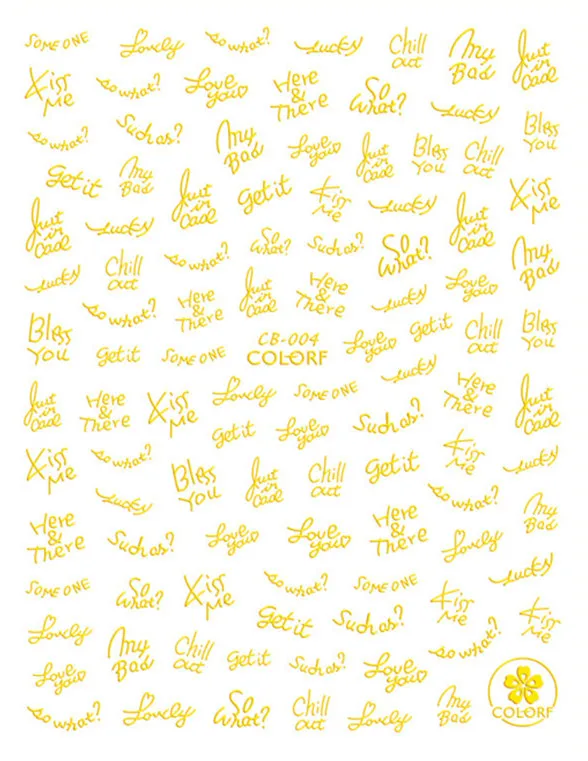 SOME ONE Lovely so what? Lucky Chill out My Bad Just in Case
Kiss Me so what? Love you Here & There So What? Lucky Bless You
so what? Such as? My Bad Love you Just in Case Bless You Chill out
Get it My Bad Just in Case Get it Kiss Me Lucky Just in Case Kiss Me
Just in Case Lucky so what? So What? Such as? So What? My Bad
Lucky Chill out so what? Here & There Just in Case Here & There Lucky Love you
Bless You Get it SOME ONE CB-004 COLORF Love you Get it Chill out Bless You
Just in Case Here & There Kiss Me Lovely SOME ONE Lucky Here & There Just in Case
Get it Love you Such as?
Kiss Me so what? Lucky Bless You Just in Case Chill out Get it Kiss Me Lucky
so what? My Bad
Here & There Such as? Love you Love you Here & There Lovely
SOME ONE So What? Kiss Me so what? SOME ONE Kiss Me Lucky
Lovely Get it Such as? so what? Kiss Me
Love you My Bad Chill out Get it Such as? Love you
so what? Lovely So What? Chill out Lovely My Bad COLORF